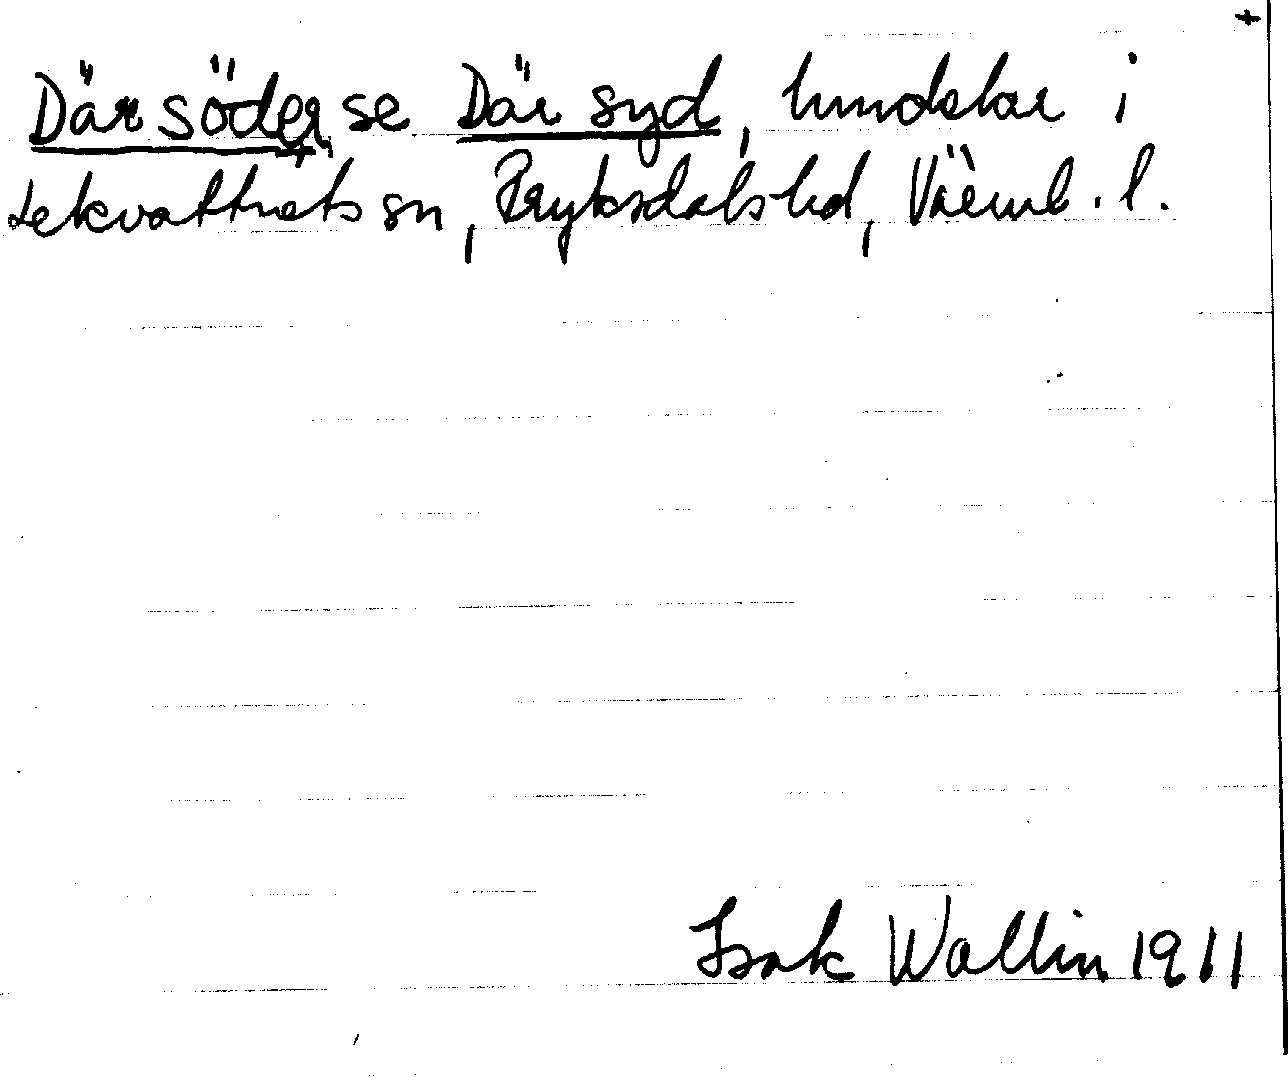 +
Där söder, se Där syd, hundstar i
Lekvattnets sn, Fryksdals hd, Värml. l.
Isak Wallin 1911